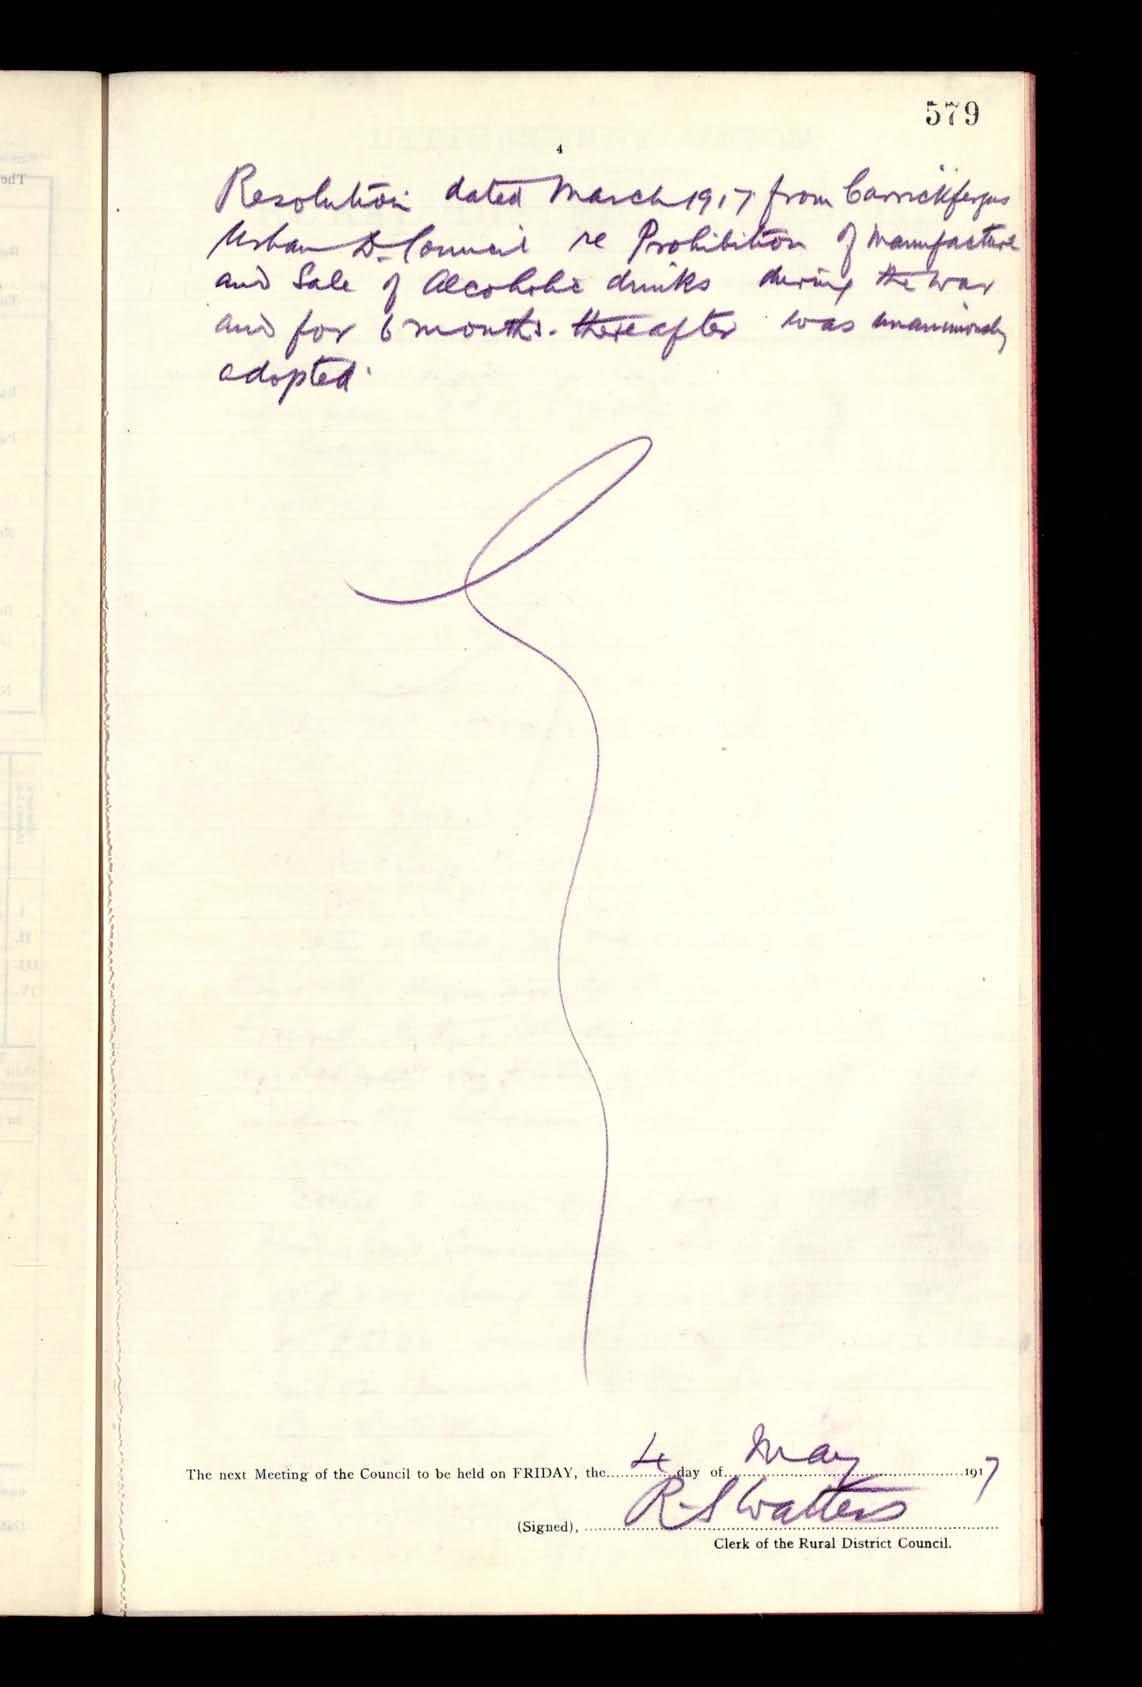 579
4
Resolution dated March 1917 from Carrickfergus
Urban D. Council re Prohibition of Manufacture
and Sale of Alcoholic drinks during the war
and for 6 months thereafter was unanimously
adopted.
The next Meeting of the Council to be held on FRIDAY, the 4 day of May 1917
(Signed), R. S Watters
Clerk of the Rural District Council.